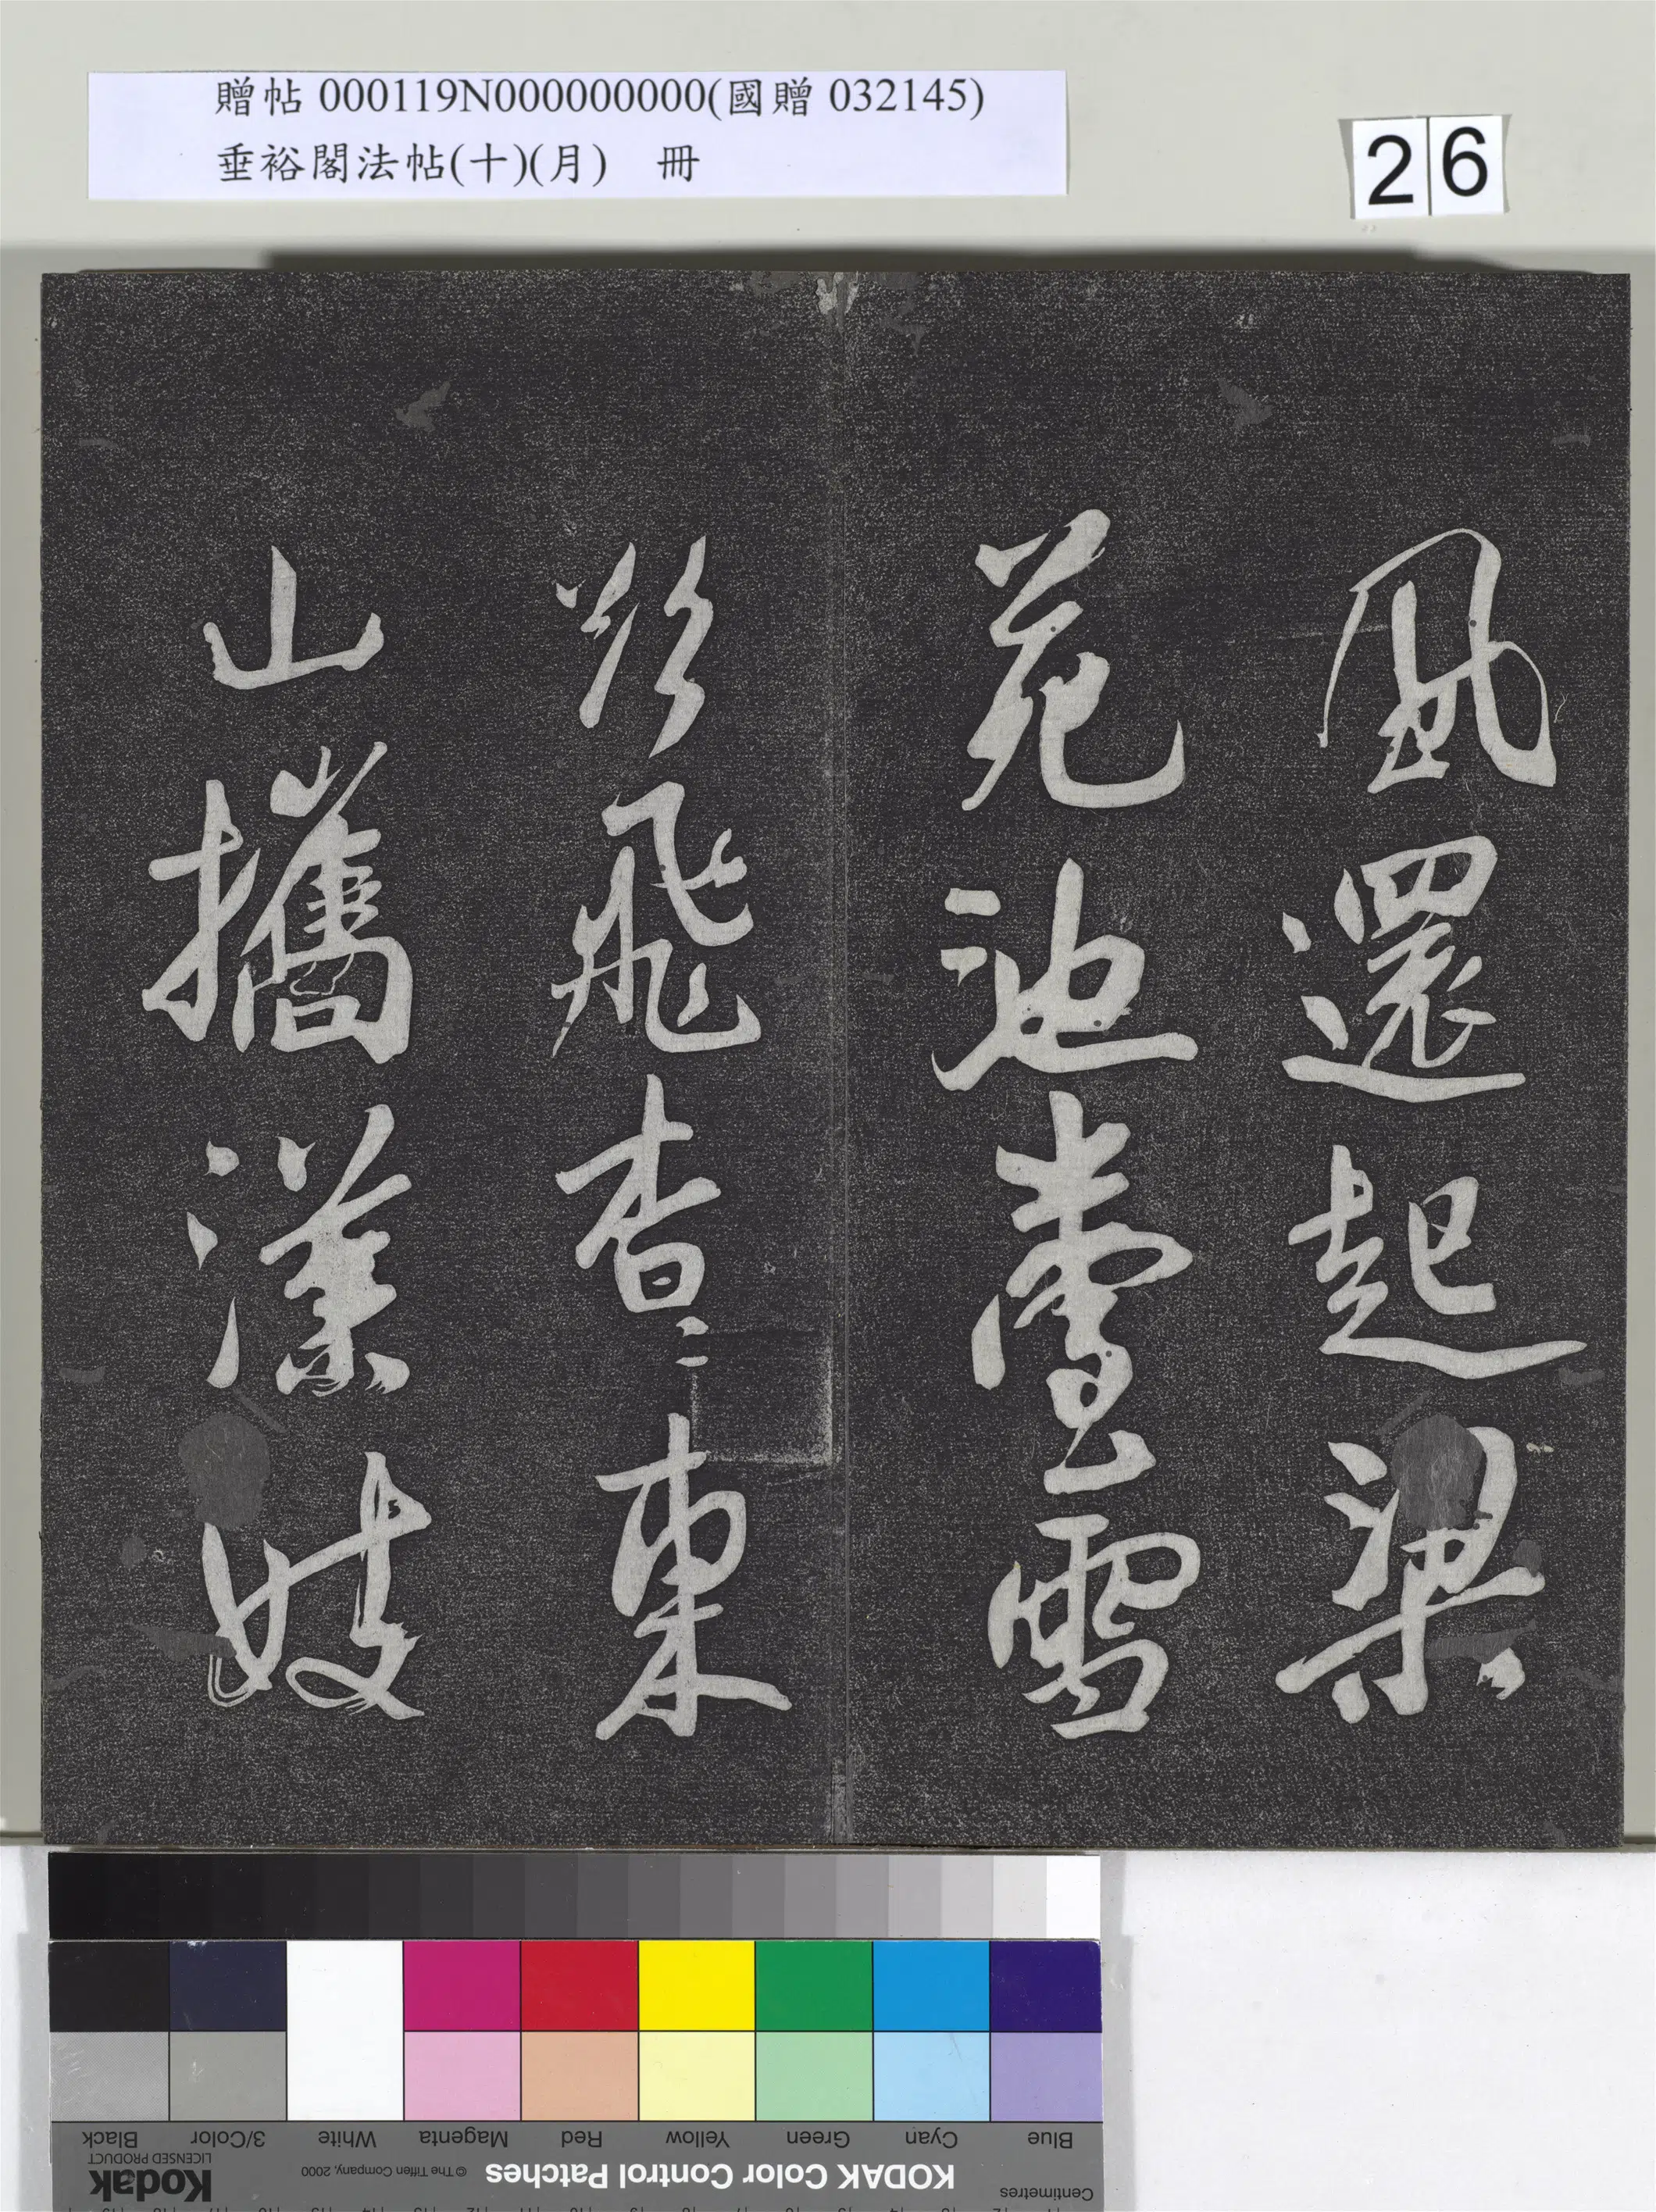 贈帖 000119N000000000(國贈 032145)
垂裕閣法帖(十)(月) 冊
26
風還起梁
苑池臺雪
欲飛杳〻東
山攜漢妓
Blue Cyan Green Yellow Red Magenta White 3/Color Black
Centimetres KODAK Color Control Patches © The Tiffen Company, 2000 Kodak LICENSED PRODUCT